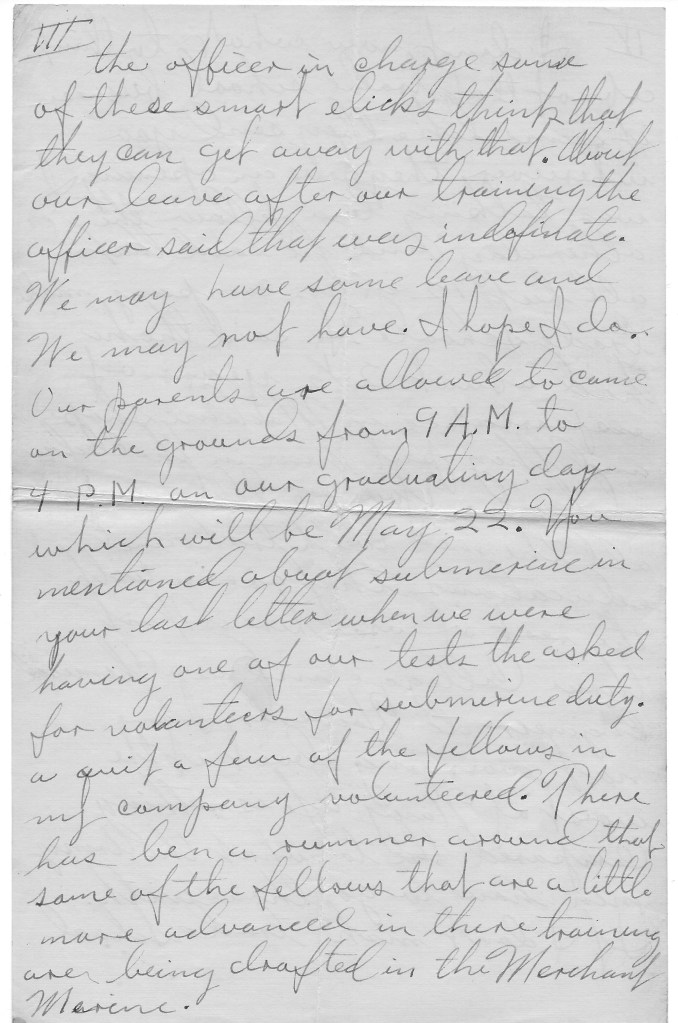 III
the officer in charge some
of these smart elicks think that
they can get away with that. About
our leave after our training the
officer said that was indefinate.
We may have some leave and
We may not have. I hope I do.
Our parents are allowed to come
on the grounds from 9 A.M. to
4 P.M. on our graduating day
which will be May 22. You
mentioned about submerine in
your last letter when we were
having one of our tests the asked
for volunteers for submerine duty.
a quit a few of the fellows in
my company volunteered. There
has ben a rummer around that
some of the fellows that are a little
more advanced in there training
are being drafted in the Merchant
Merine.